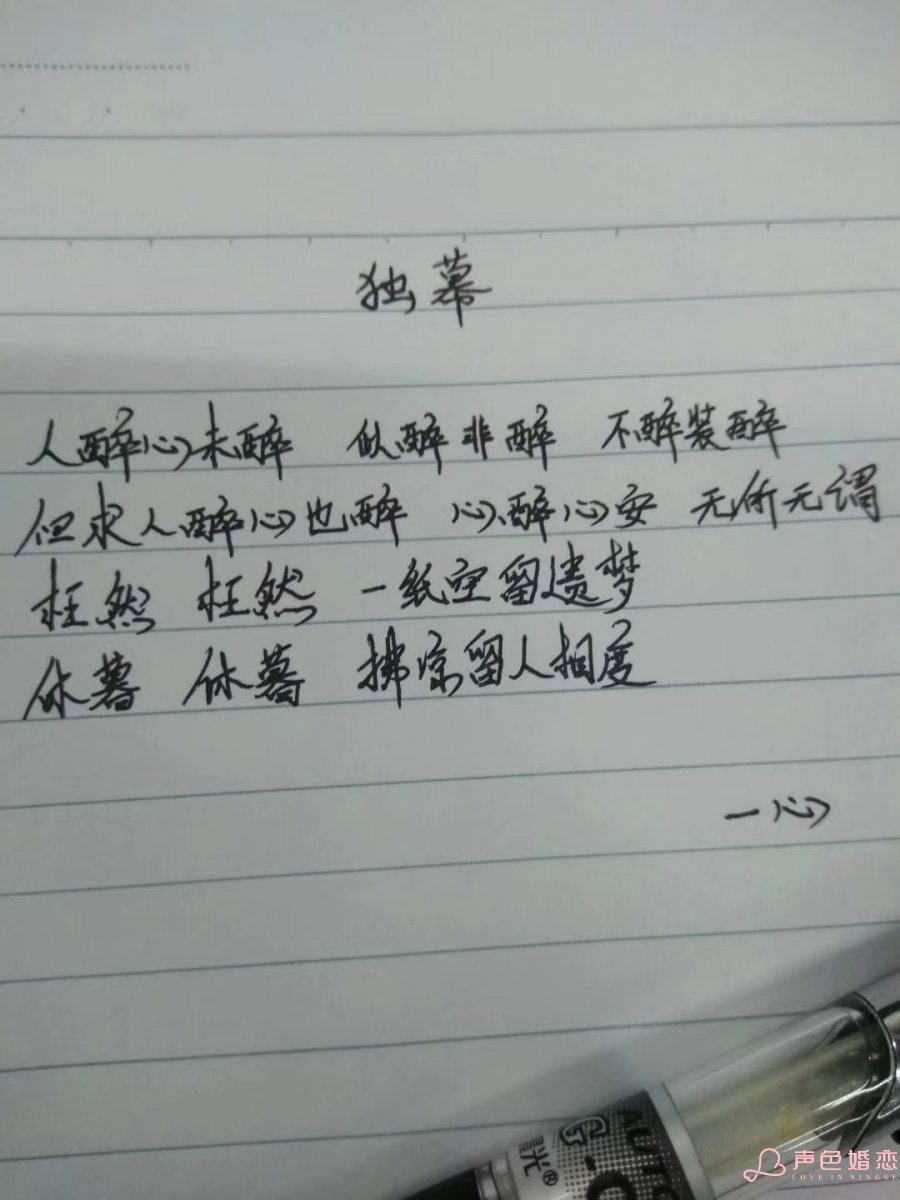 独幕
人醉心未醉 似醉非醉 不醉装醉
但求人醉心也醉 心醉心安 无所无谓
枉然 枉然 一纸空留遗梦
休暮 休暮 拂凉留人相度
一心
AUTO
G
-C
光®
声色婚恋
LOVE IN SINGSE